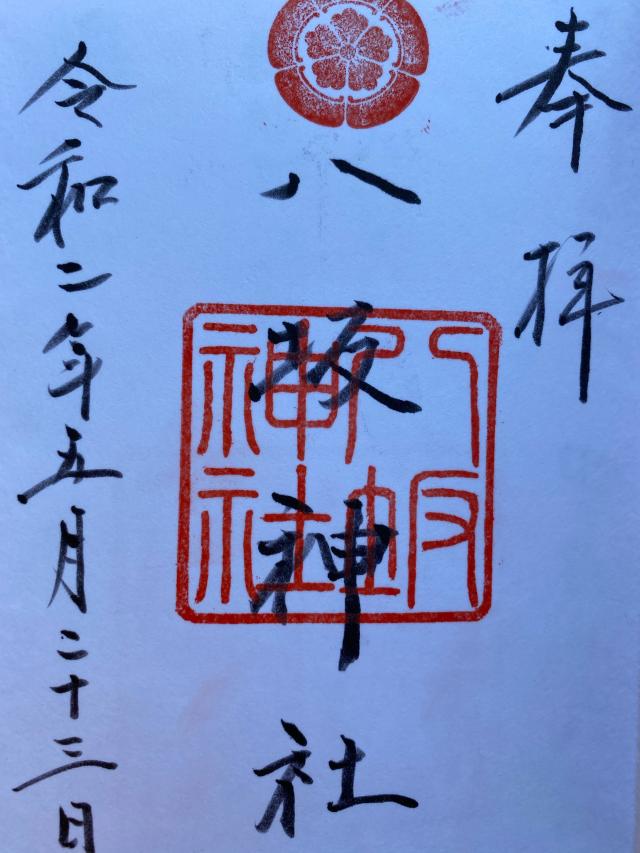 奉拝
八坂神社
八坂神社
令和二年五月二十三日